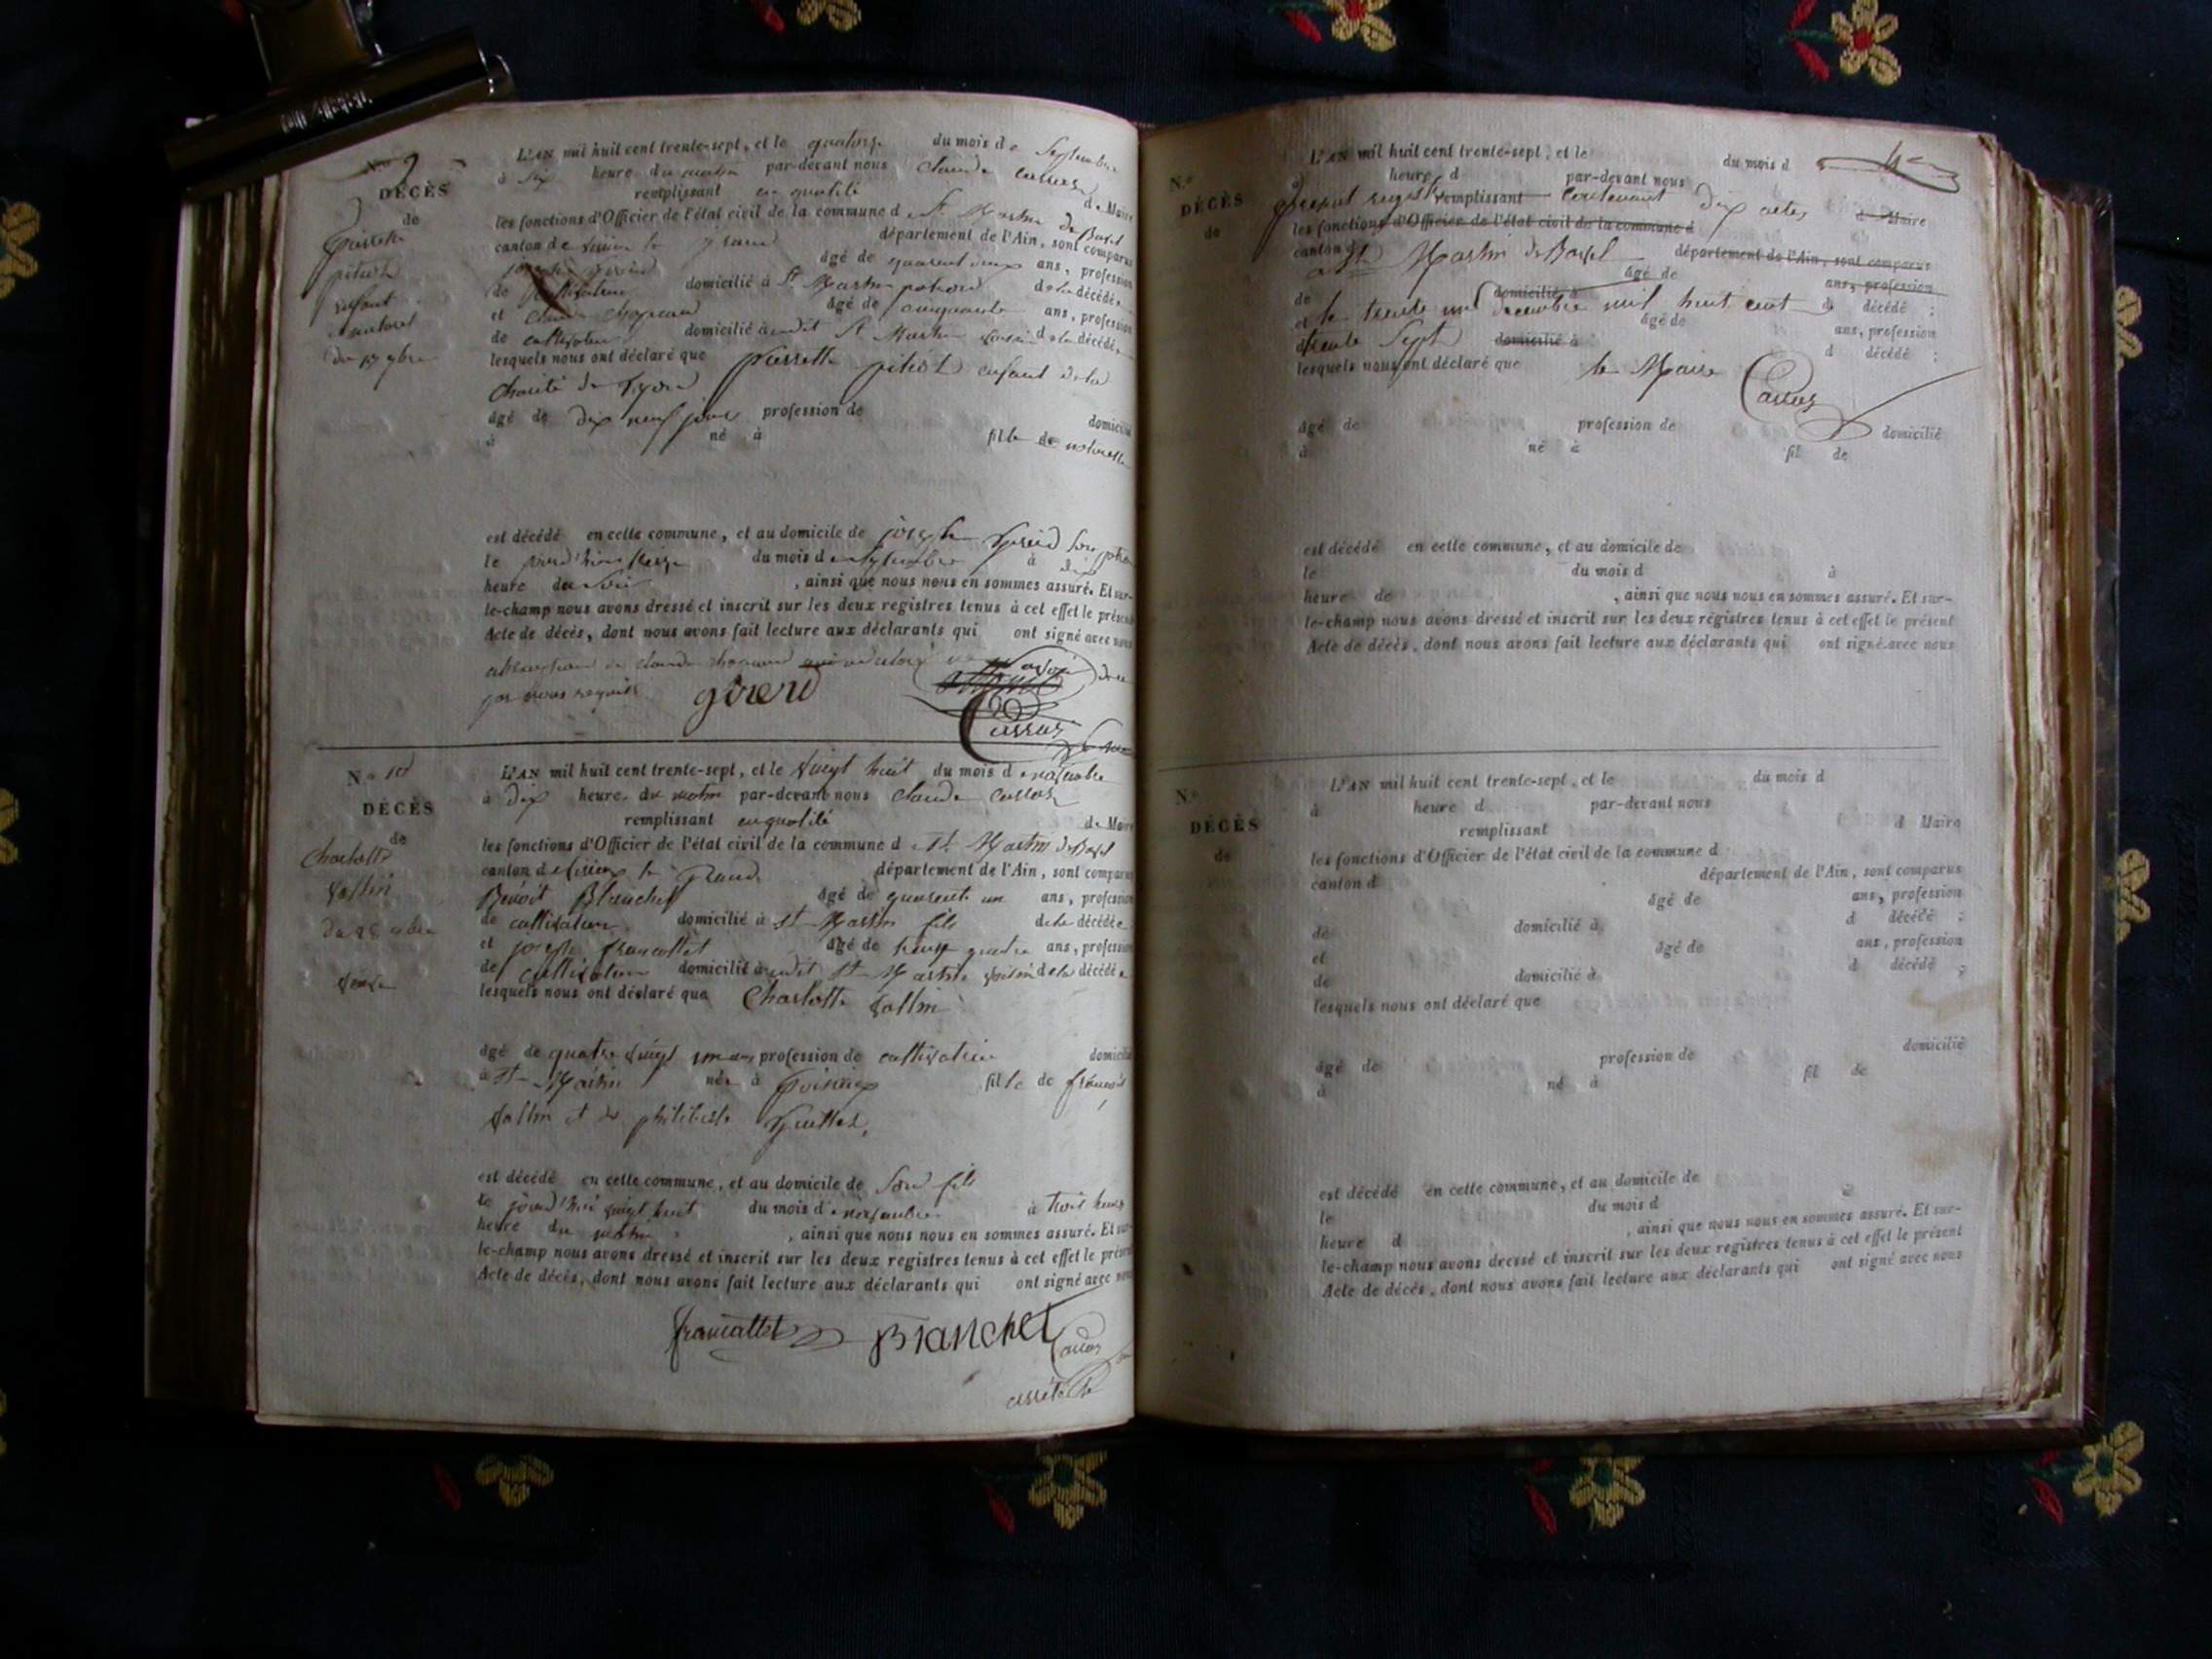 N.o 9
DÉCÈS
de
pierrette
enfant
naturel
L'AN mil huit cent trente-sept, et le quatorze du mois de Septembre
à Six heure du matin par-devant nous Claude
remplissant en qualité de Maire
les fonctions d'Officier de l'état civil de la commune d St Martin de Bavel
canton de le grand département de l'Ain, sont comparus
joseph âgé de quarente deux ans, profession
de cultivateur domicilié à St Martin de la décédée
et Claude âgé de cinquante ans, profession
de cultivateur domicilié audit St Martin voisin de la décédée
lesquels nous ont déclaré que pierrette enfant de la
charité de Lyon
âgé de dix neuf jours profession de domicilié
à né à fille de naturelle
est décédé en cette commune, et au domicile de joseph
le jourd'hui du mois de Septembre à dix
heure du Soir , ainsi que nous nous en sommes assuré. Et sur-
le-champ nous avons dressé et inscrit sur les deux registres tenus à cet effet le présent
Acte de décès, dont nous avons fait lecture aux déclarants qui ont signé avec nous
de claude
par nous requis
N.o 10
DÉCÈS
de
Charlotte
du 28 9bre
veuve
L'AN mil huit cent trente-sept, et le vingt huit du mois de novembre
à dix heure du matin par-devant nous Claude
remplissant en qualité de Maire
les fonctions d'Officier de l'état civil de la commune d St Martin de Bavel
canton de le Grand département de l'Ain, sont comparus
Benoit Blanchet âgé de quarente un ans, profession
de cultivateur domicilié à St Martin fils de la décédée
et joseph francallet âgé de trente quatre ans, profession
de cultivateur domicilié audit St Martin voisin de la décédée
lesquels nous ont déclaré que Charlotte
âgé de quatre vingt un ans profession de cultivatrice domicilié
à St Martin née à fille de françois
et de philiberte
est décédé en cette commune, et au domicile de Son fils
le jourd'hui vingt huit du mois de novembre à trois heures
heure du matin , ainsi que nous nous en sommes assuré. Et sur-
le-champ nous avons dressé et inscrit sur les deux registres tenus à cet effet le présent
Acte de décès, dont nous avons fait lecture aux déclarants qui ont signé avec nous
francallet Blanchet
arrêté le
N.o
DÉCÈS
de
L'AN mil huit cent trente-sept, et le du mois d
à heure d par-devant nous
présent registre remplissant contenant dix actes d Maire
les fonctions d'Officier de l'état civil de la commune d
canton d département de l'Ain, sont comparus
à St Martin de Bavel
âgé de ans, profession
de domicilié à d décédé ;
et le trente un decembre mil huit cent
âgé de ans, profession
de trente Sept domicilié à d décédé ;
lesquels nous ont déclaré que le Maire
âgé de profession de domicilié
à né à fil de
est décédé en cette commune, et au domicile de
le du mois d à
heure de , ainsi que nous nous en sommes assuré. Et sur-
le-champ nous avons dressé et inscrit sur les deux registres tenus à cet effet le présent
Acte de décès, dont nous avons fait lecture aux déclarants qui ont signé avec nous
N.o
DÉCÈS
de
L'AN mil huit cent trente-sept, et le du mois d
à heure d par-devant nous
remplissant d Maire
les fonctions d'Officier de l'état civil de la commune d
canton d département de l'Ain, sont comparus
âgé de ans, profession
de domicilié à d décédé ;
et âgé de ans, profession
de domicilié à d décédé ;
lesquels nous ont déclaré que
âgé de profession de domicilié
à né à fil de
est décédé en cette commune, et au domicile de
le du mois d à
heure d , ainsi que nous nous en sommes assuré. Et sur-
le-champ nous avons dressé et inscrit sur les deux registres tenus à cet effet le présent
Acte de décès, dont nous avons fait lecture aux déclarants qui ont signé avec nous